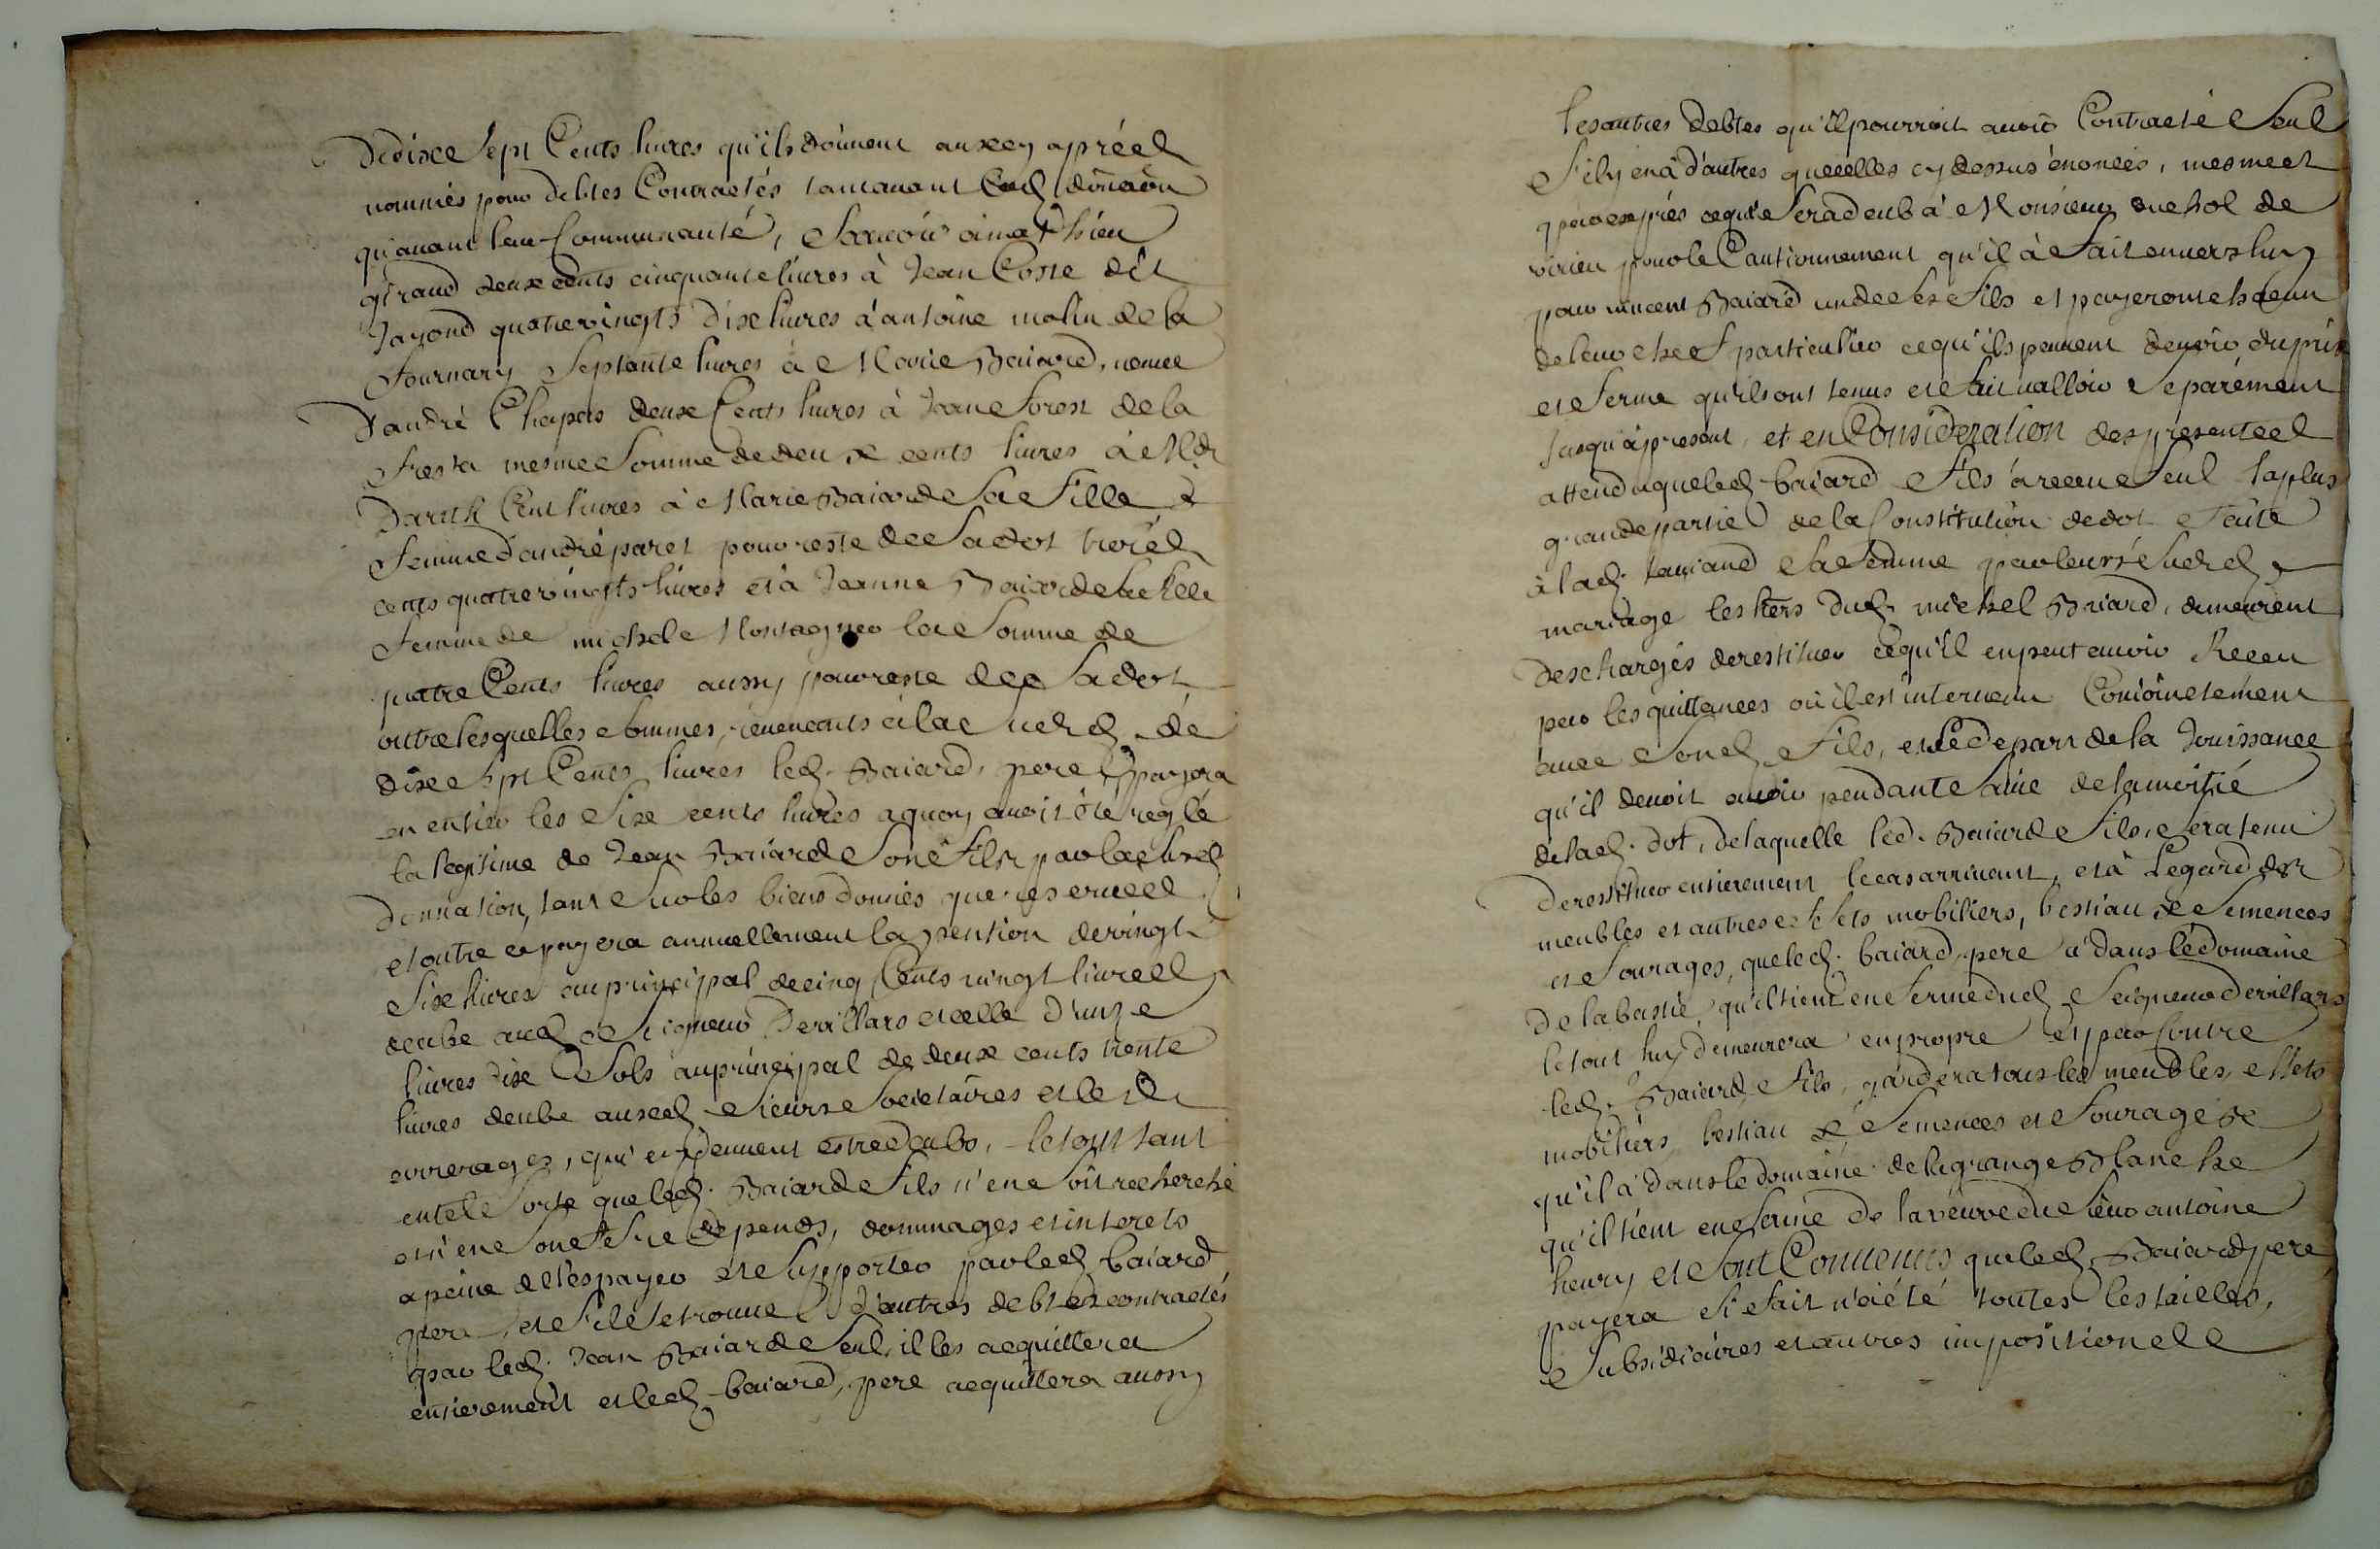 De dixe sept Cents livres qu'ils doivent aux cy apréd
nommés pour debtes Contractés tant avant lad donaon
qu'avant leur Communauté, Scavoir a mathieu
giraud deux cents cinquante livres à Jean Coste dit
Jayond quatre vingts dix livres à antoine molin de la
fournary Septante livres à Marie Baiard, vefve
D'andré Chapas deux Cents livres à Jean forest de la
mesme Somme de deux cents livres à
Cent livres à Marie Baiard Sa fille
femme d'andré paret pour reste de Sa dot trois
cents quatre vingts livres et à Jeanne Baiard
femme de michel Montagner la Somme de
quatre Cents livres aussy pour reste de Sa dot
outre lesquelles Sommes, revenants à la Susd. de
dixe Sept Cents livres led. Baiard, pere payera
en entier les Sixe cents livres a quoy avoit été reglé
la legitime de Jean Baiard Son fils par la Susd
Donnation, tant Sur les biens donnés que reservéd
et outre ce payera annuellement la pention de vingt
Sixe livres au principal de cinq Cents vingt livred
deube aud Seigneur De villars et celle d'unze
livres dixe Sols au principal de deux cents trente
livres deube ausd Sieurs Societaires et les
arrerages, qu'en peuvent estre deubs, le tout tant
en tele Sorte que led. Baiard fils n'en Soit recherché
et n'en Souffre depends, dommages et interets
a peine de les payer et Supporter par led baiard
pere, et S'il Se trouve d'autres debtes contractés
par led. Jean Baiard Seul, il les acquittera
entierement et led baiard, pere acquittera aussy
les autres debtes qu'il pourroit avoir Contracté Seul
S'il y en a d'autres que celles cy dessus énoncés, mesme et
par exprés ce qui Sera deub à Monsieur de
virieu pour le Cautionnement qu'il à fait envers luy
pour vincent Baiard un de Ses fils et payeront chacun
de leur chef particulier ce qu'ils peuvent devoir du prix
et ferme qu'ils ont tenus et fait valloir Separément
Jusqu'à present, et en Consideration des presented
attendu que led baiard fils à receu Seul la plus
grande partie de la Constitution de dot faite
à lad. Sa femme par leur Susd
mariage les hers dud. michel Baiard, demeurent
deschargés de restituer ce qu'il en peut avoir Receu
par les quittances où il est intervenu Conjoinctement
avec Sond fils, et Se depart de la Jouissance
qu'il devoit avoir pendant Sa vie de la moitié
de lad. dot, de laquelle led. Baiard fils, Sera tenu
de restituer entierement le cas arrivant, et à L'egard der
meubles et autres effets mobiliers, bestiaux Semences
et fourages, que led. baiard, pere a dans le domaine
De la bastie, qu'il tient en ferme dud Seigneur de villars
le tout luy demeurera en propre et par Contre
led. Baiard fils, gardera tous les meubles, effets
mobiliers, bestiaux Semences et fourage de
qu'il à dans le domaine de la grange Blanche
qu'il tient en ferme de la veuve du Sieur antoine
henry et Sont Convenus que led. Baiard pere
payera Si fait n'a été toutes les tailles,
Subsidiaires et autres impositioned